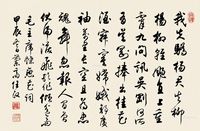 我失驕楊君失柳
楊柳輕颺直上重
霄九問訊吳剛何所
有吳剛捧出桂花
酒寂寞嫦娥舒廣
袖萬里長空且為忠
魂舞忽報人間曾
伏虎淚飛頓作傾盆雨
毛主席蝶戀花詞
甲辰